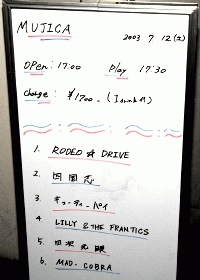 MUJICA
2003 7 12 (土)
Open: 17:00 Play 17:30
Charge: ¥1700- (1drink付)
1. RODEO ☆ DRIVE
2.
3. キューティーパイ
4 LILLY & THE FRANTICS
5.
6. MAD-COBRA